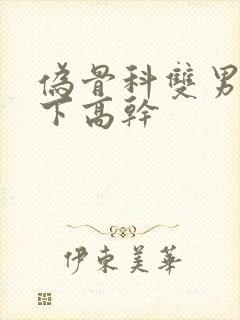 偽骨科雙男
下高幹
伊東美華